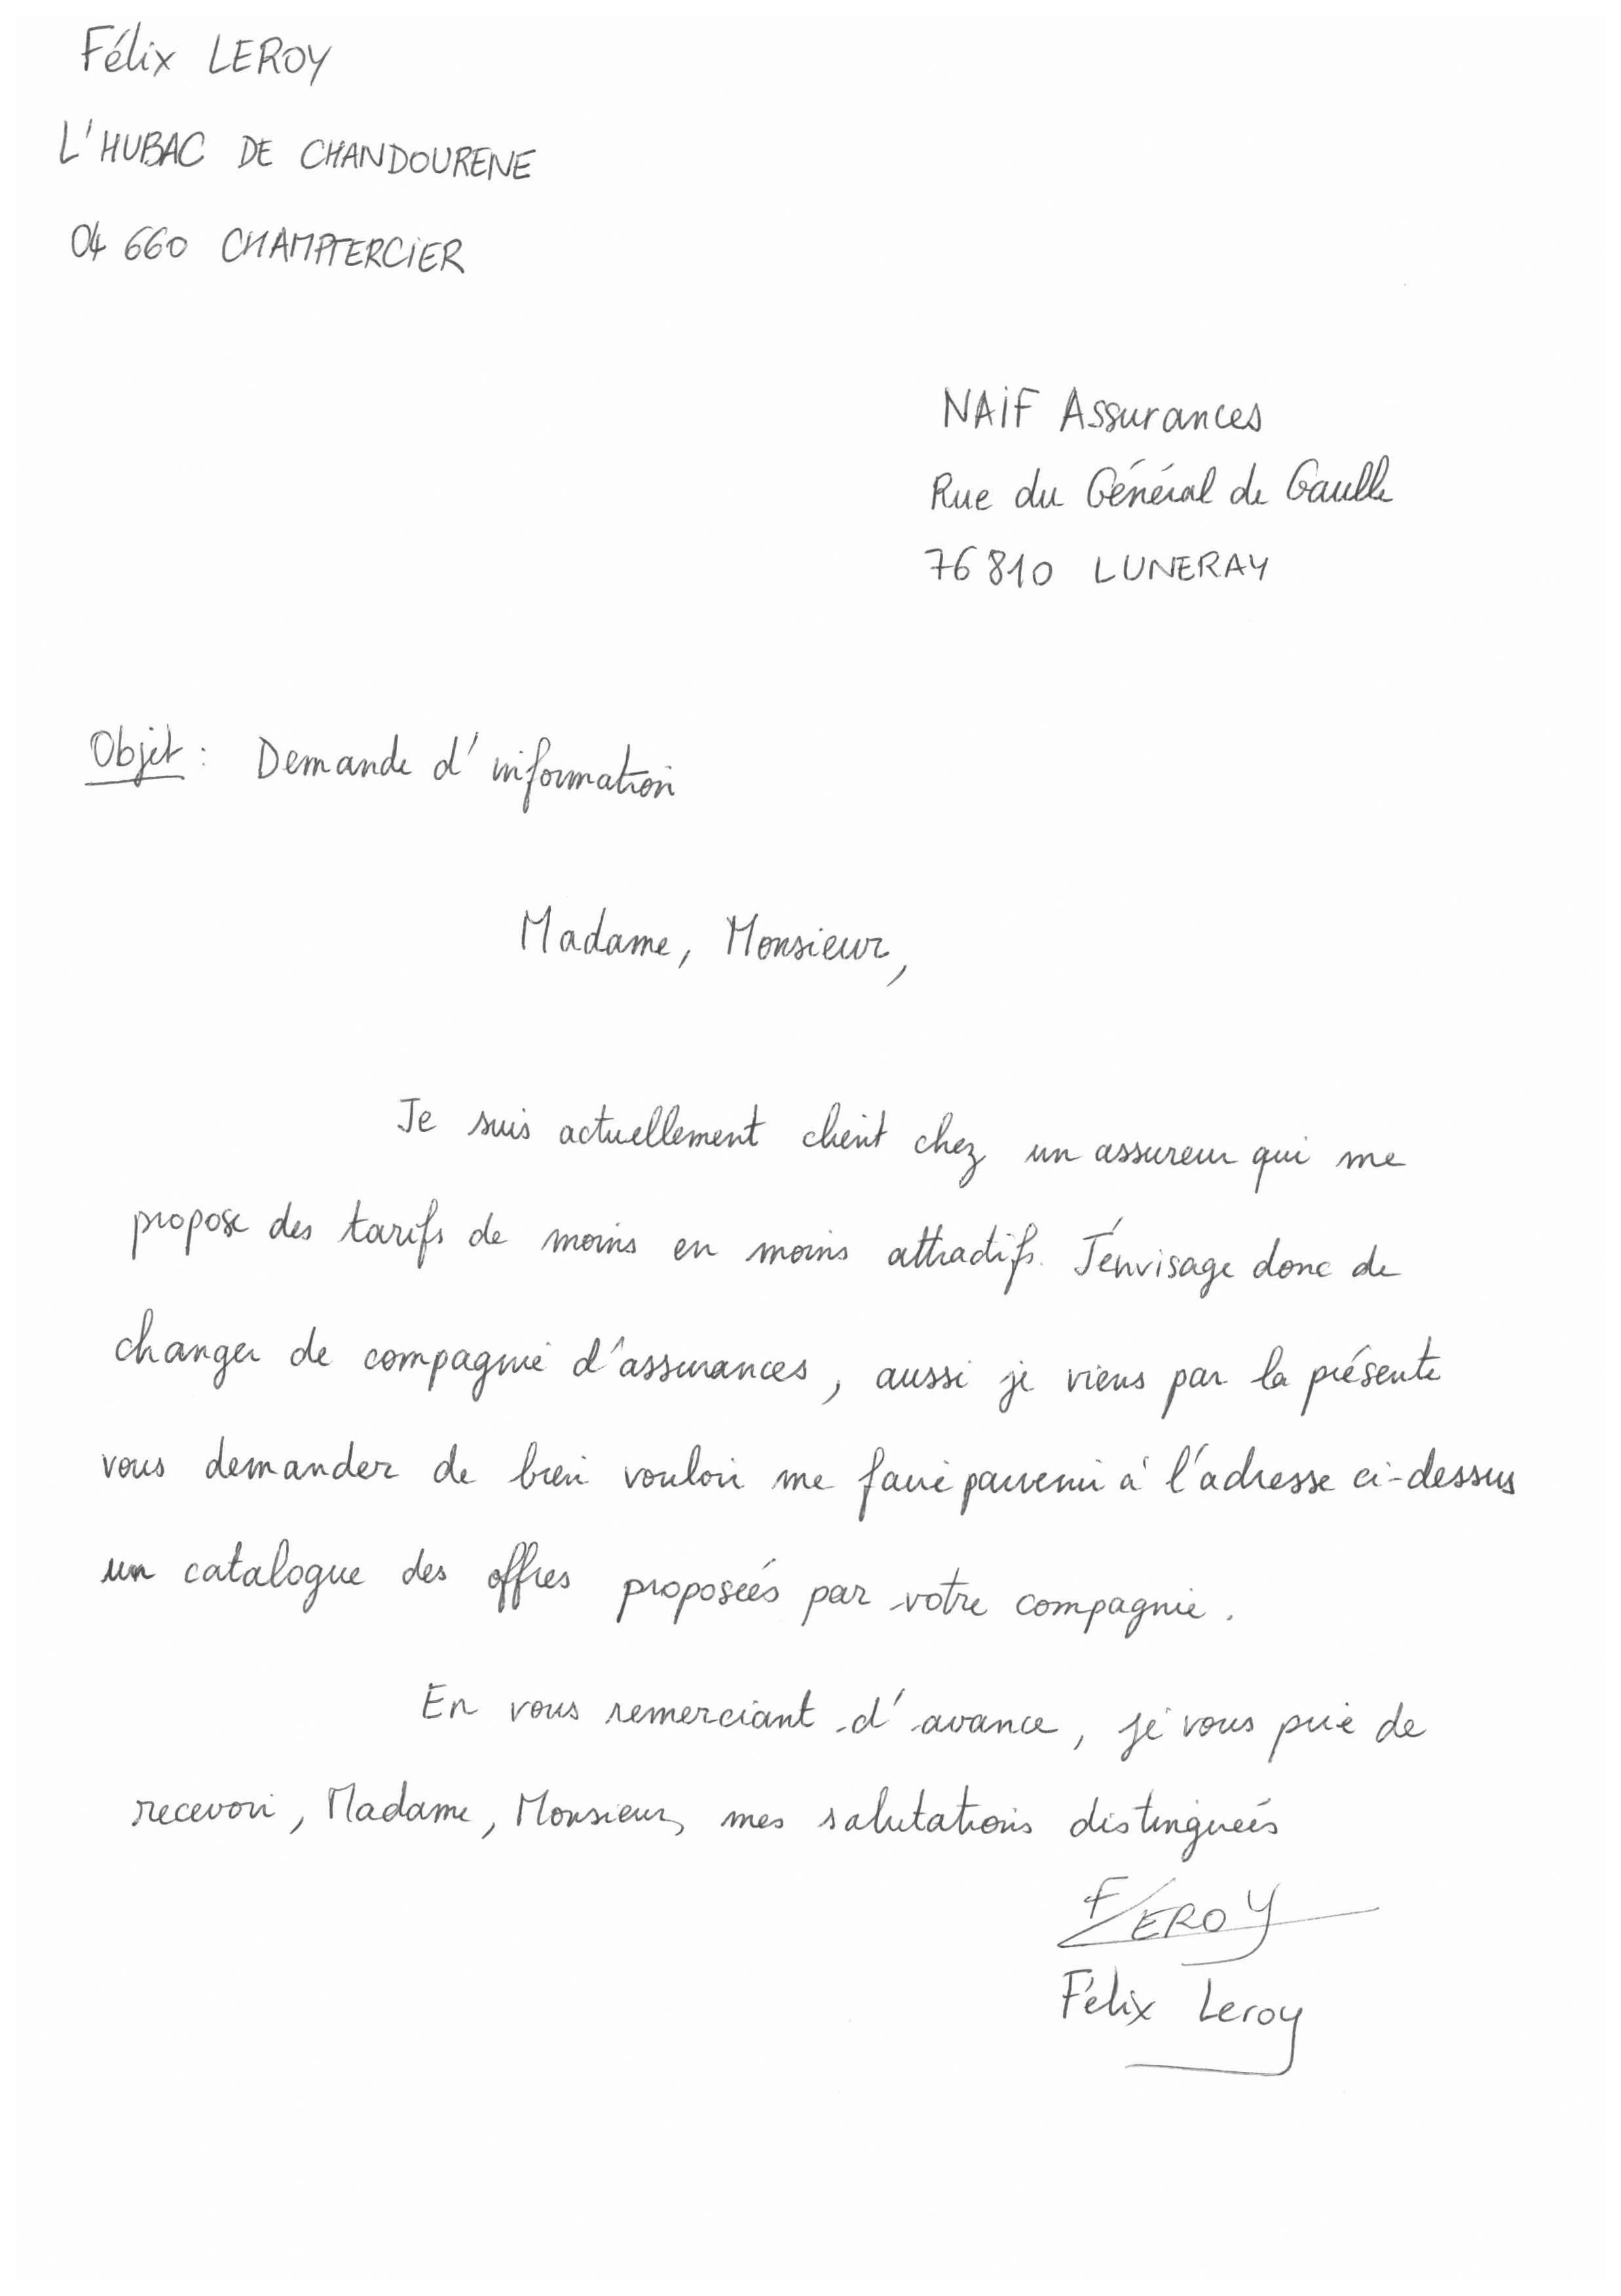 Félix LEROY
L'HUBAC DE CHANDOURENE
04 660 CHAMPTERCIER
NAIF Assurances
Rue du Général de Gaulle
76 810 LUNERAY
Objet : Demande d'information
Madame, Monsieur,
Je suis actuellement client chez un assureur qui me
propose des tarifs de moins en moins attractifs. J'envisage donc de
changer de compagnie d'assurances, aussi je viens par la présente
vous demander de bien vouloir me faire parvenir à l'adresse ci-dessus
un catalogue des offres proposées par votre compagnie.
En vous remerciant d'avance, je vous prie de
recevoir, Madame, Monsieur, mes salutations distinguées
F LEROY
Félix Leroy